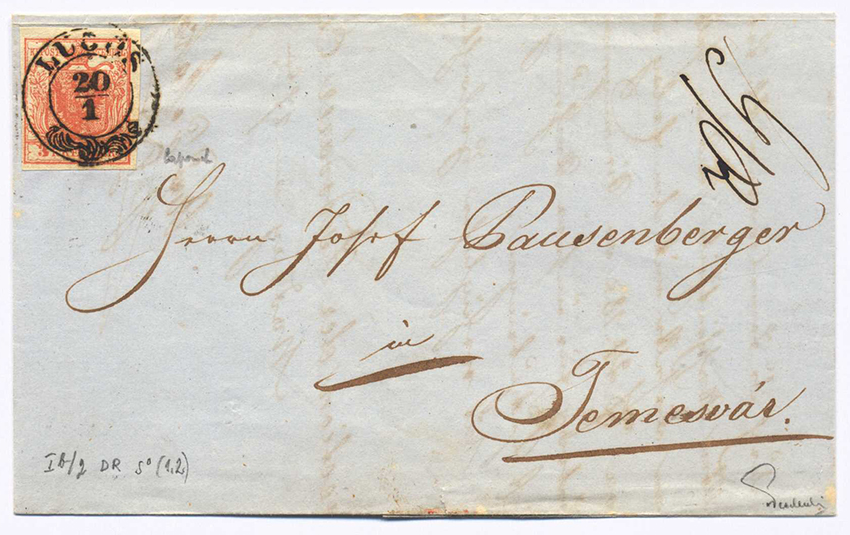 LUGOS
20
1
Herrn Josef Pausenberger
in
Temesvár.
Ib/g DR 5° (1,2)